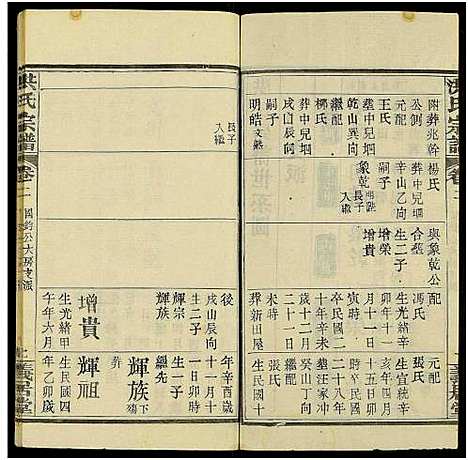 洪氏宗譜
卷二
附葬兆幹
公側
元配
王氏
葬中兒塥
乾山巽向
繼配
柳氏
葬中兒塥
戌山辰向
嗣子
明皓
楊氏
葬中兒塥
辛山乙向
嗣子
象乾
長子
入繼
與象乾公
合塋
生二子
增榮
增貴
配
馮氏
生光緒辛
卯年十一
月十一日
寅時
卒民國二
十年辛未
十一月
二十一日
未時
葬新田屋
元配
張氏
生宣統辛
亥年四月
十五日卯
時
二十八年
葬汪家冲
癸山丁向
繼配
生民國十
長子
入繼
後
戌山辰向
生二子
輝宗
輝族
增貴
生光緒甲
午年六月
年辛酉歲
十一月十
一日卯時
生一子
繼先
輝族
輝祖
生民國四
年乙卯歲
洪氏宗譜
卷二
國鈞公大房支派
義居堂